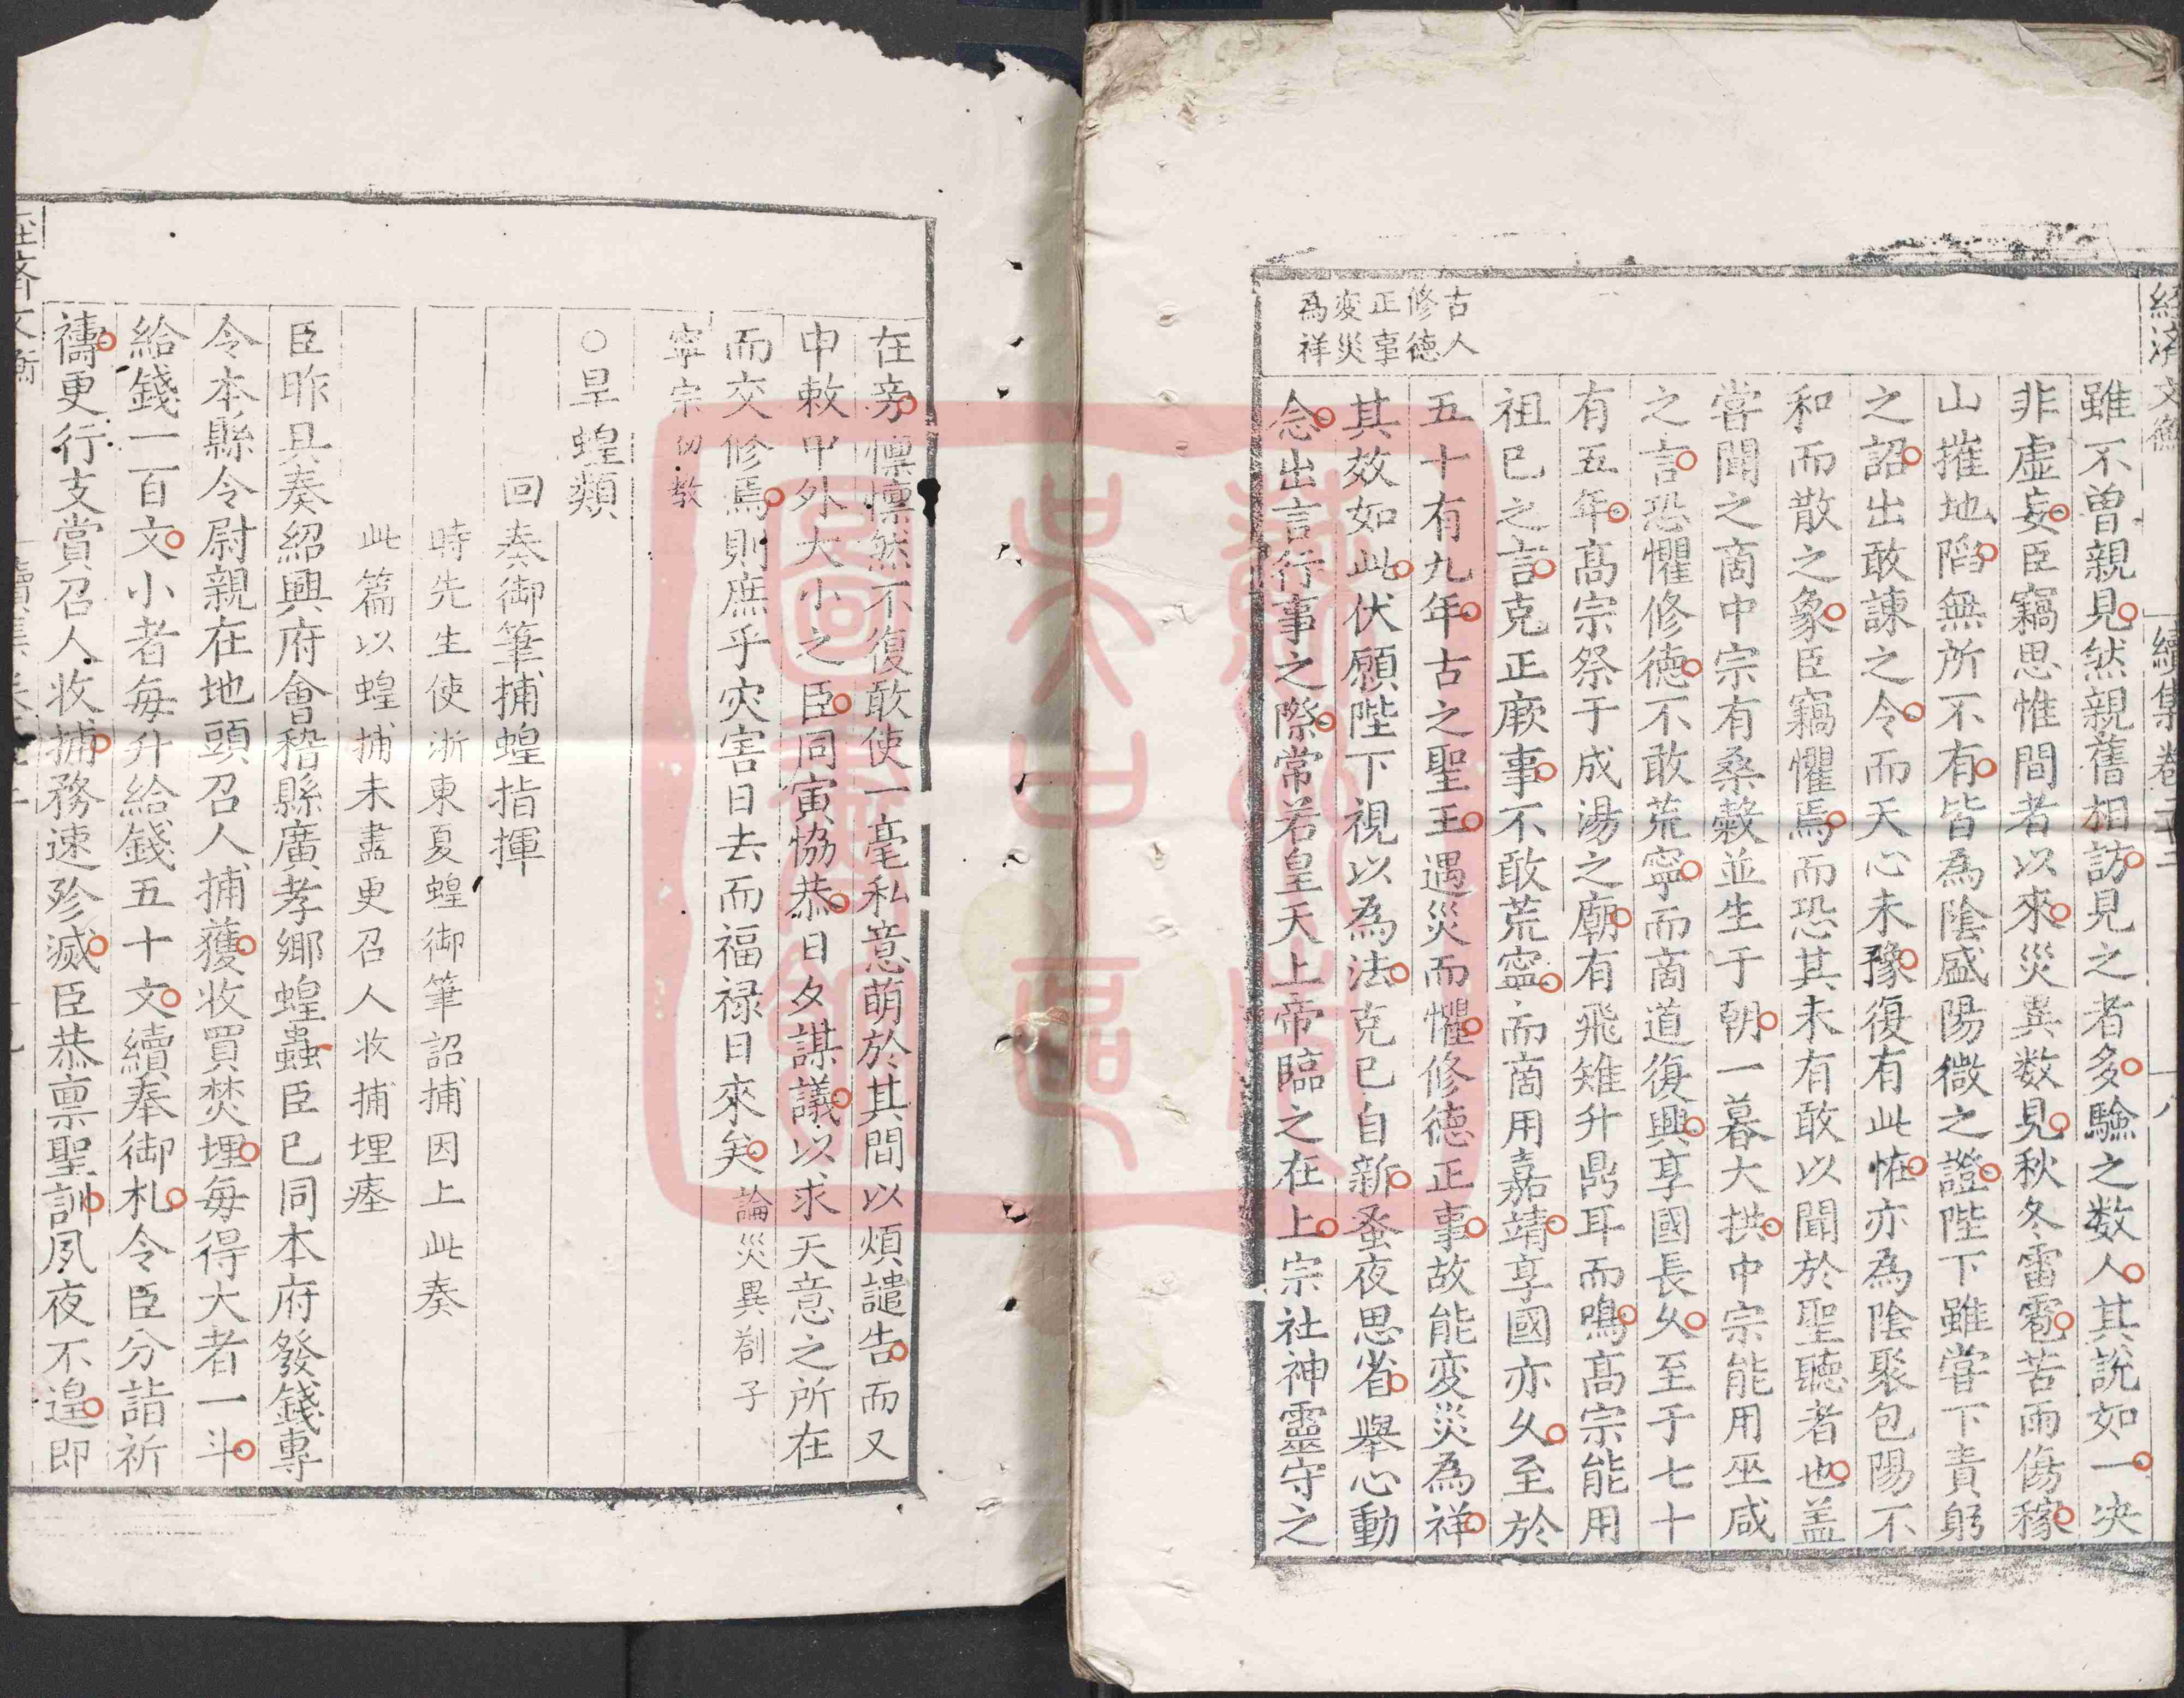 經済文衡 續集卷二十二 十八
雖不曽親見然親舊相訪見之者多驗之数人其説如一决
非虚妄臣竊思惟間者以來災異数見秋冬雷雹苦雨傷稼
山摧地陷無所不有皆為陰盛陽微之證陛下雖嘗下責躬
之詔出敢諫之令而天心未豫復有此恠亦為陰聚包陽不
和而散之象臣竊懼焉而恐其未有敢以聞於聖聽者也盖
嘗聞之商中宗有桑穀並生于朝一暮大拱中宗能用巫咸
之言恐懼修德不敢荒寧而商道復興享國長久至于七十
有五年髙宗祭于成湯之廟有飛雉升鼎耳而鳴髙宗能用
祖已之言克正厥事不敢荒寧而商用嘉靖享國亦久至於
五十有九年古之聖王遇災而懼修德正事故能変災為祥
其效如此伏願陛下視以為法克已自新蚤夜思省舉心動
念出言行事之際常若皇天上帝臨之在上宗社神靈守之
古人
修徳
正事
変災
為祥
在旁懔懔然不復敢使一毫私意萌於其間以煩譴告而又
申敕中外大小之臣同寅協恭日夕謀議以求天意之所在
而交修焉則庶乎灾害日去而福禄日來矣論災異劄子
寧宗初教
○旱蝗類
回奏御筆捕蝗指揮
時先生使浙東夏蝗御筆詔捕因上此奏
此篇以蝗捕未盡更召人收捕埋瘞
臣昨具奏紹興府會稽縣廣孝鄉蝗蟲臣已同本府發錢專
令本縣令尉親在地頭召人捕獲收買焚埋每得大者一斗
給錢一百文小者每升給錢五十文續奉御札令臣分詣祈
禱更行支賞召人收捕務速殄滅臣恭禀聖訓夙夜不遑即
蘇州市
吴中區
圖書館